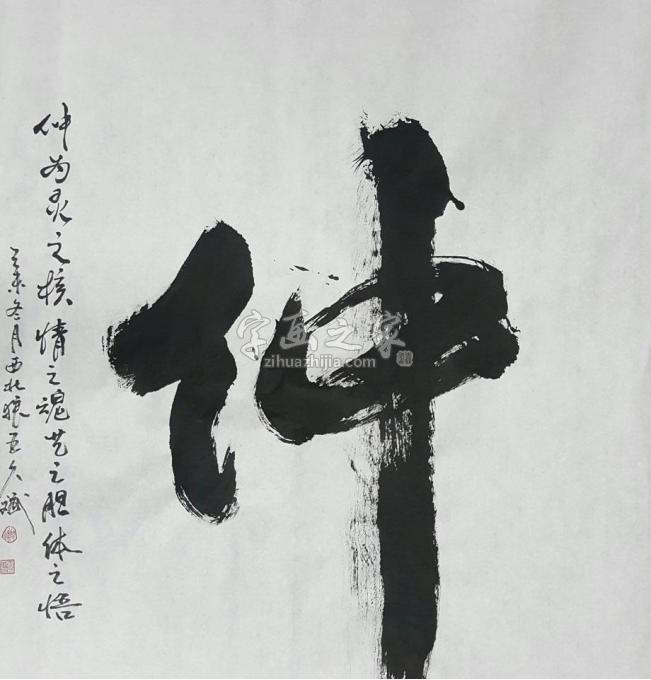 仲
仲为灵之核情之魂艺之胆体之悟
乙未冬月西北狼
字画之家
zihuazhijia.com